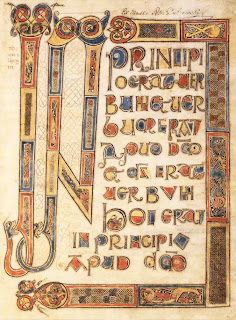 IN PRINCIPI
O ERAT UER
BUM ET UER
BUM ERAT
APUD DM
ET DS ERAT
UERBUM
HOC ERAT
IN PRINCIPIO
APUD DM